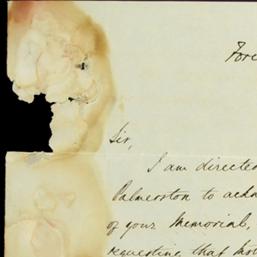 Fore
Sir,
I am directed
Palmerston to ackn
of your Memorial,
requesting that